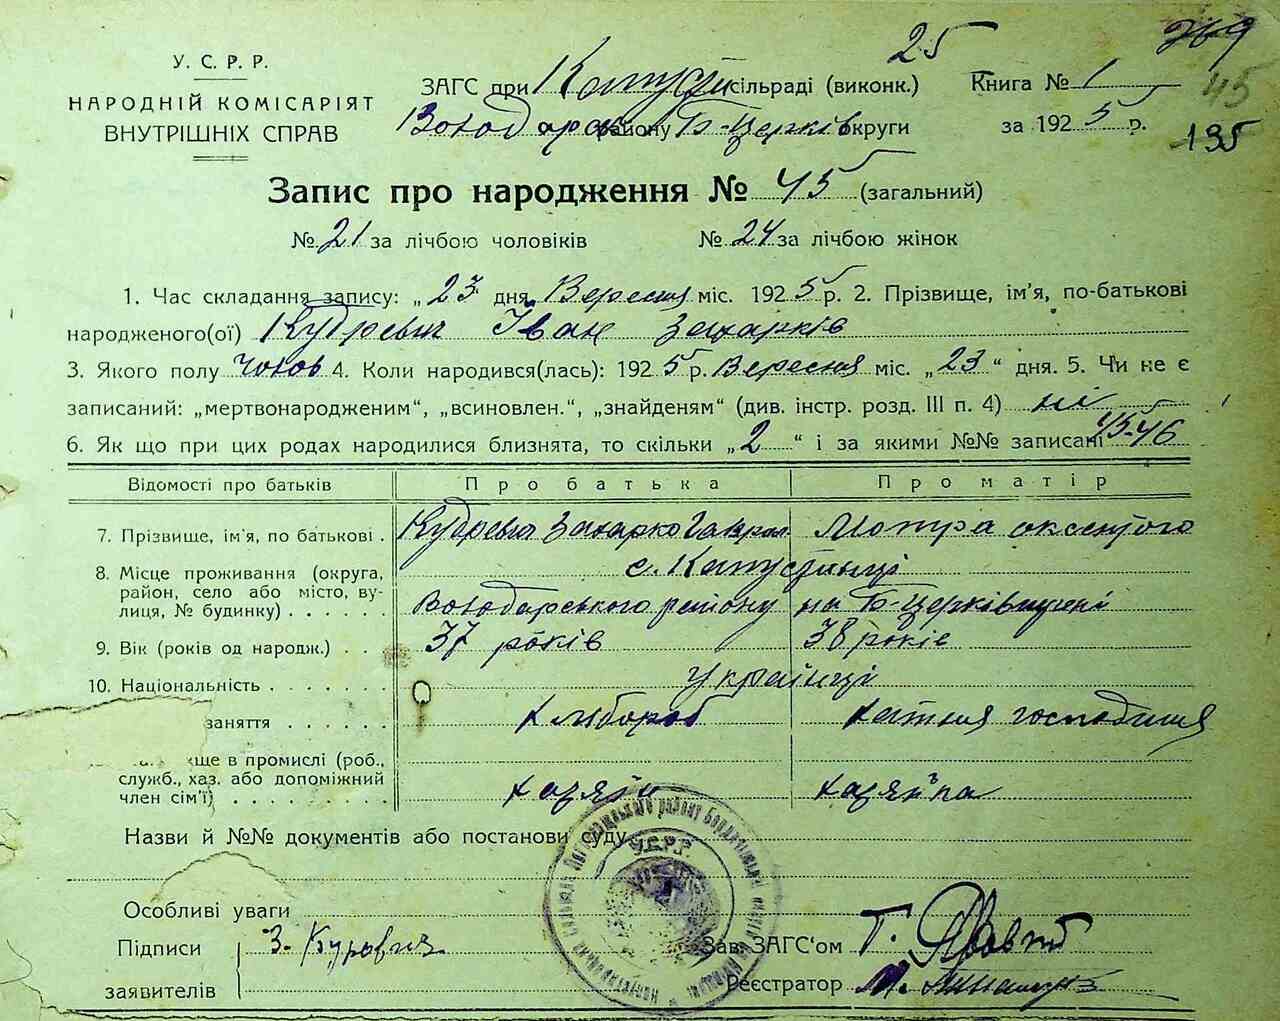 25
У. С. Р. Р.
НАРОДНІЙ КОМІСАРІЯТ
ВНУТРІШНІХ СПРАВ
45
195
ЗАГС при Капуст сільраді (виконк.) Книга № 1
Володарськ району Б-Церків округи за 1925 р.
Запис про народження № 45 (загальний)
№ 21 за лічбою чоловіків № 24 за лічбою жінок
1. Час складання запису: „23 дня Вересня міс. 1925 р. 2. Прізвище, ім'я, по-батькові
народженого(ої) Кудревич Іван Захарків
3. Якого полу чолов 4. Коли народився(лась): 1925 р. Вересня міс. „23“ дня. 5. Чи не є
записаний: „мертвонародженим“, „всиновлен.“, „знайденям“ (див. інстр. розд. III п. 4) ні
6. Як що при цих родах народилися близнята, то скільки „2“ і за якими №№ записані 45-46
Відомості про батьків Про батька Про матір
7. Прізвище, ім'я, по батькові . Кудревич Захарко Гаврил Мотра оксентова
8. Місце проживання (округа, с. Капустинці
район, село або місто, ву-
лиця, № будинку) . . . . . Володарського району на Б-Церківщині
9. Вік (років од народж.) . . 37 років 38 років
10. Національність . . . . . . . українці
заняття . . . . . хлібороб хатня господиня
ище в промислі (роб.,
служб., хаз. або допоміжний
член сім'ї) . . . . . . . . . хазяїн хазяйка
Назви й №№ документів або постанови суду
У.С.Р.Р.
Особливі уваги
Підписи З. Кудревич Зав. ЗАГС'ом Г.
заявителів Реєстратор М.